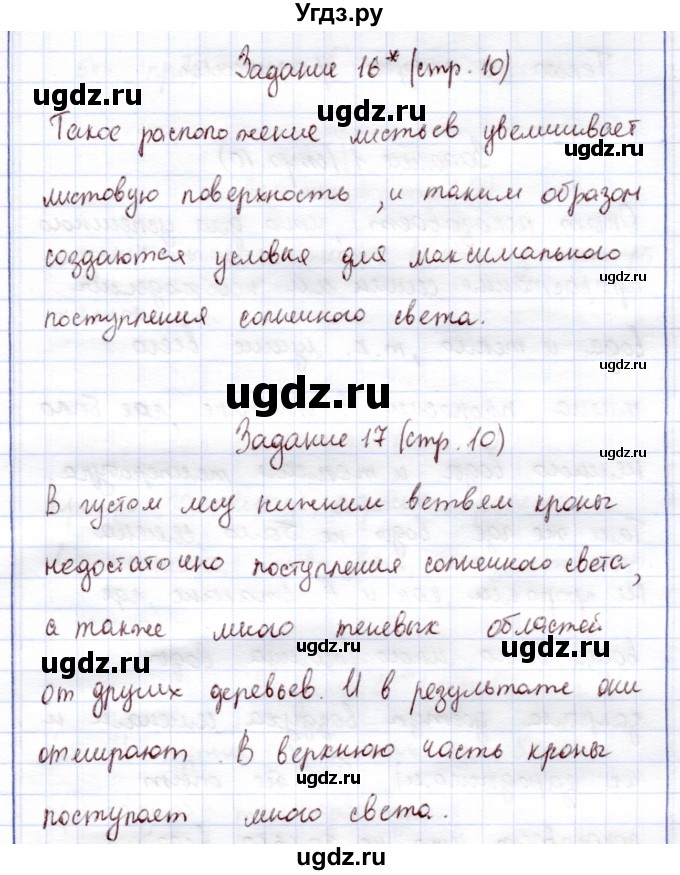 Угдз.ру
Задание 16* (стр. 10)
ugdz.ru
Такое расположение листьев увеличивает
ugdz.ru
листовую поверхность, и таким образом
создаются условия для максимального
ugdz.ru
поступления солнечного света.
ugdz.ru
ugdz.ru
Задание 17 (стр. 10)
ugdz.ru
В густом лесу нижним ветвям кроны
недостаточно поступления солнечного света,
ugdz.ru
а также много теневых областей
ugdz.ru
ugdz.ru
от других деревьев. И в результате они
отмирают. В верхнюю часть кроны
ugdz.ru
поступает много света.
ugdz.ru
ugdz.ru